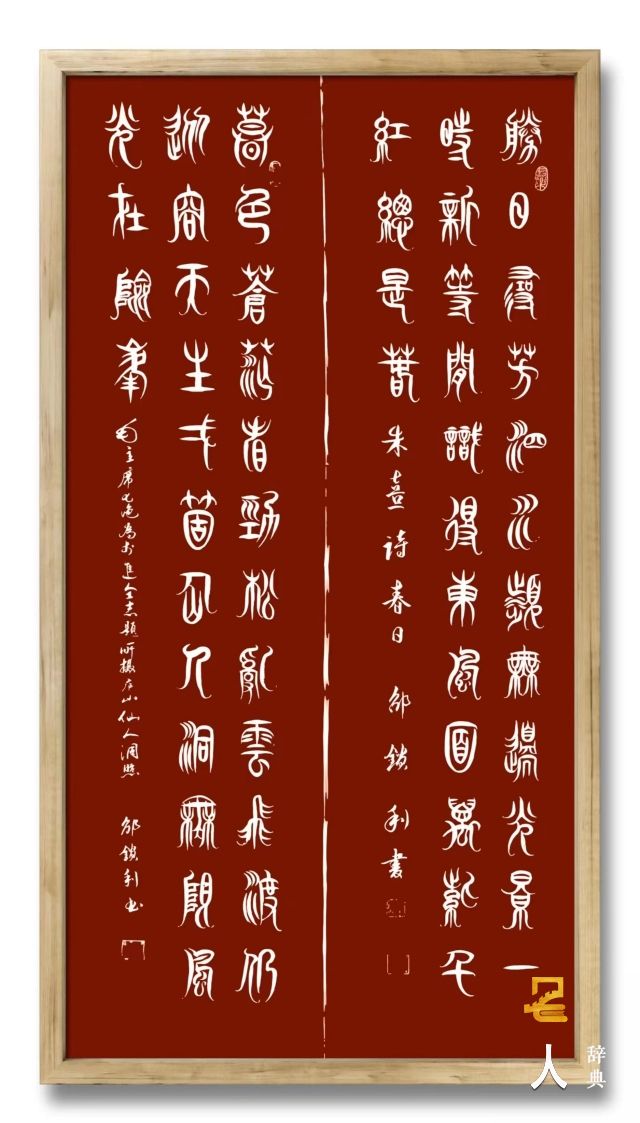 勝日尋芳泗水濱無邊光景一
時新等閒識得東風面萬紫千
紅總是春 朱熹詩春日 邵鎖利書
暮色蒼茫看勁松亂雲飛渡仍
從容天生弌箇仙人洞無限風
光在險峯 毛主席七绝為李進仝志題所攝庐山仙人洞照 邵鎖利书
人
辞典